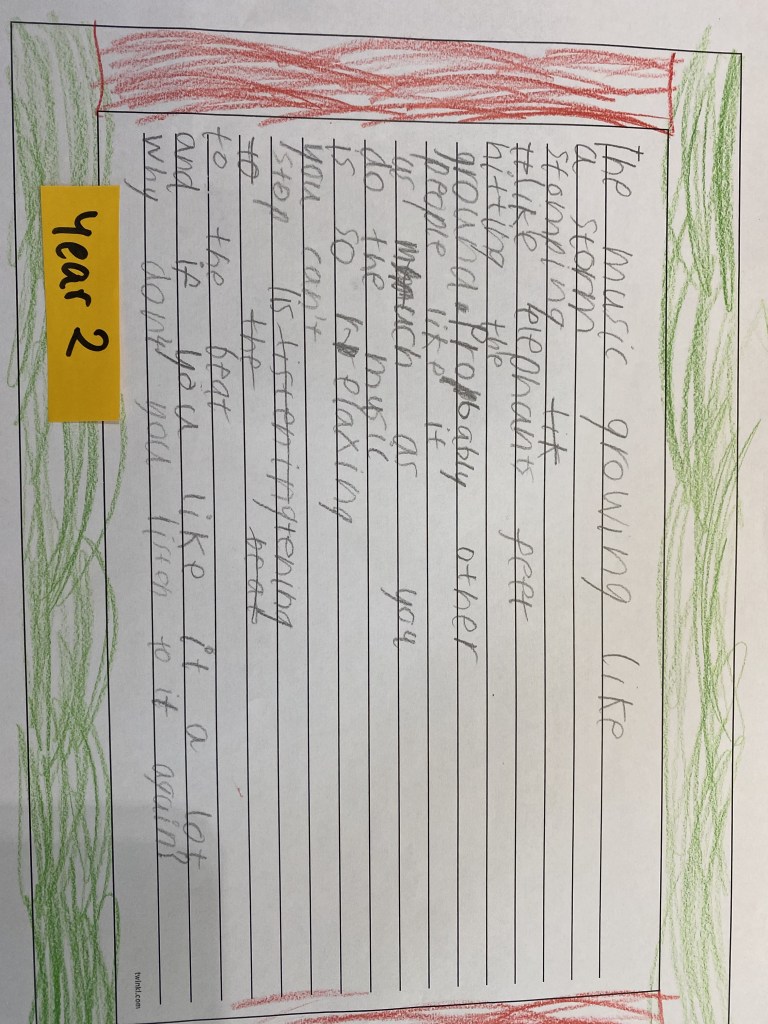 The music growing like
a storm
stomping
like elephants feet
hitting the
ground. Probably other
people like it
as much as you
do the music
is so relaxing
you can't
stop lististering tening
to the beat
to the beat
and if you like it a lot
why don't you listen to it again?
Year 2
twinkl.com